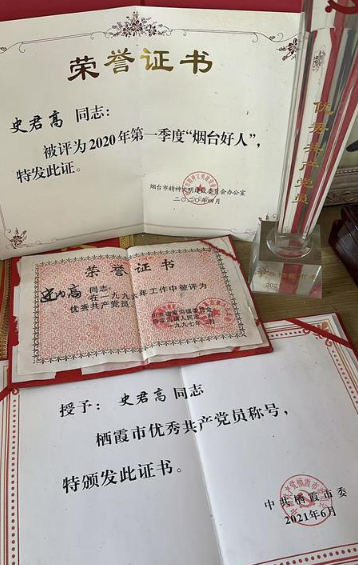 荣誉证书
史君高 同志:
被评为2020年第一季度“烟台好人”,
特发此证。
烟台市精神文明建设委员会办公室
二〇二〇年四月
优秀共产党员
荣誉证书
同志:
在一九九六年工作中被评为
优秀共产党员
一九九七年
授予: 史君高 同志
栖霞市优秀共产党员称号,
特颁发此证书。
中共栖霞市委
2021年6月